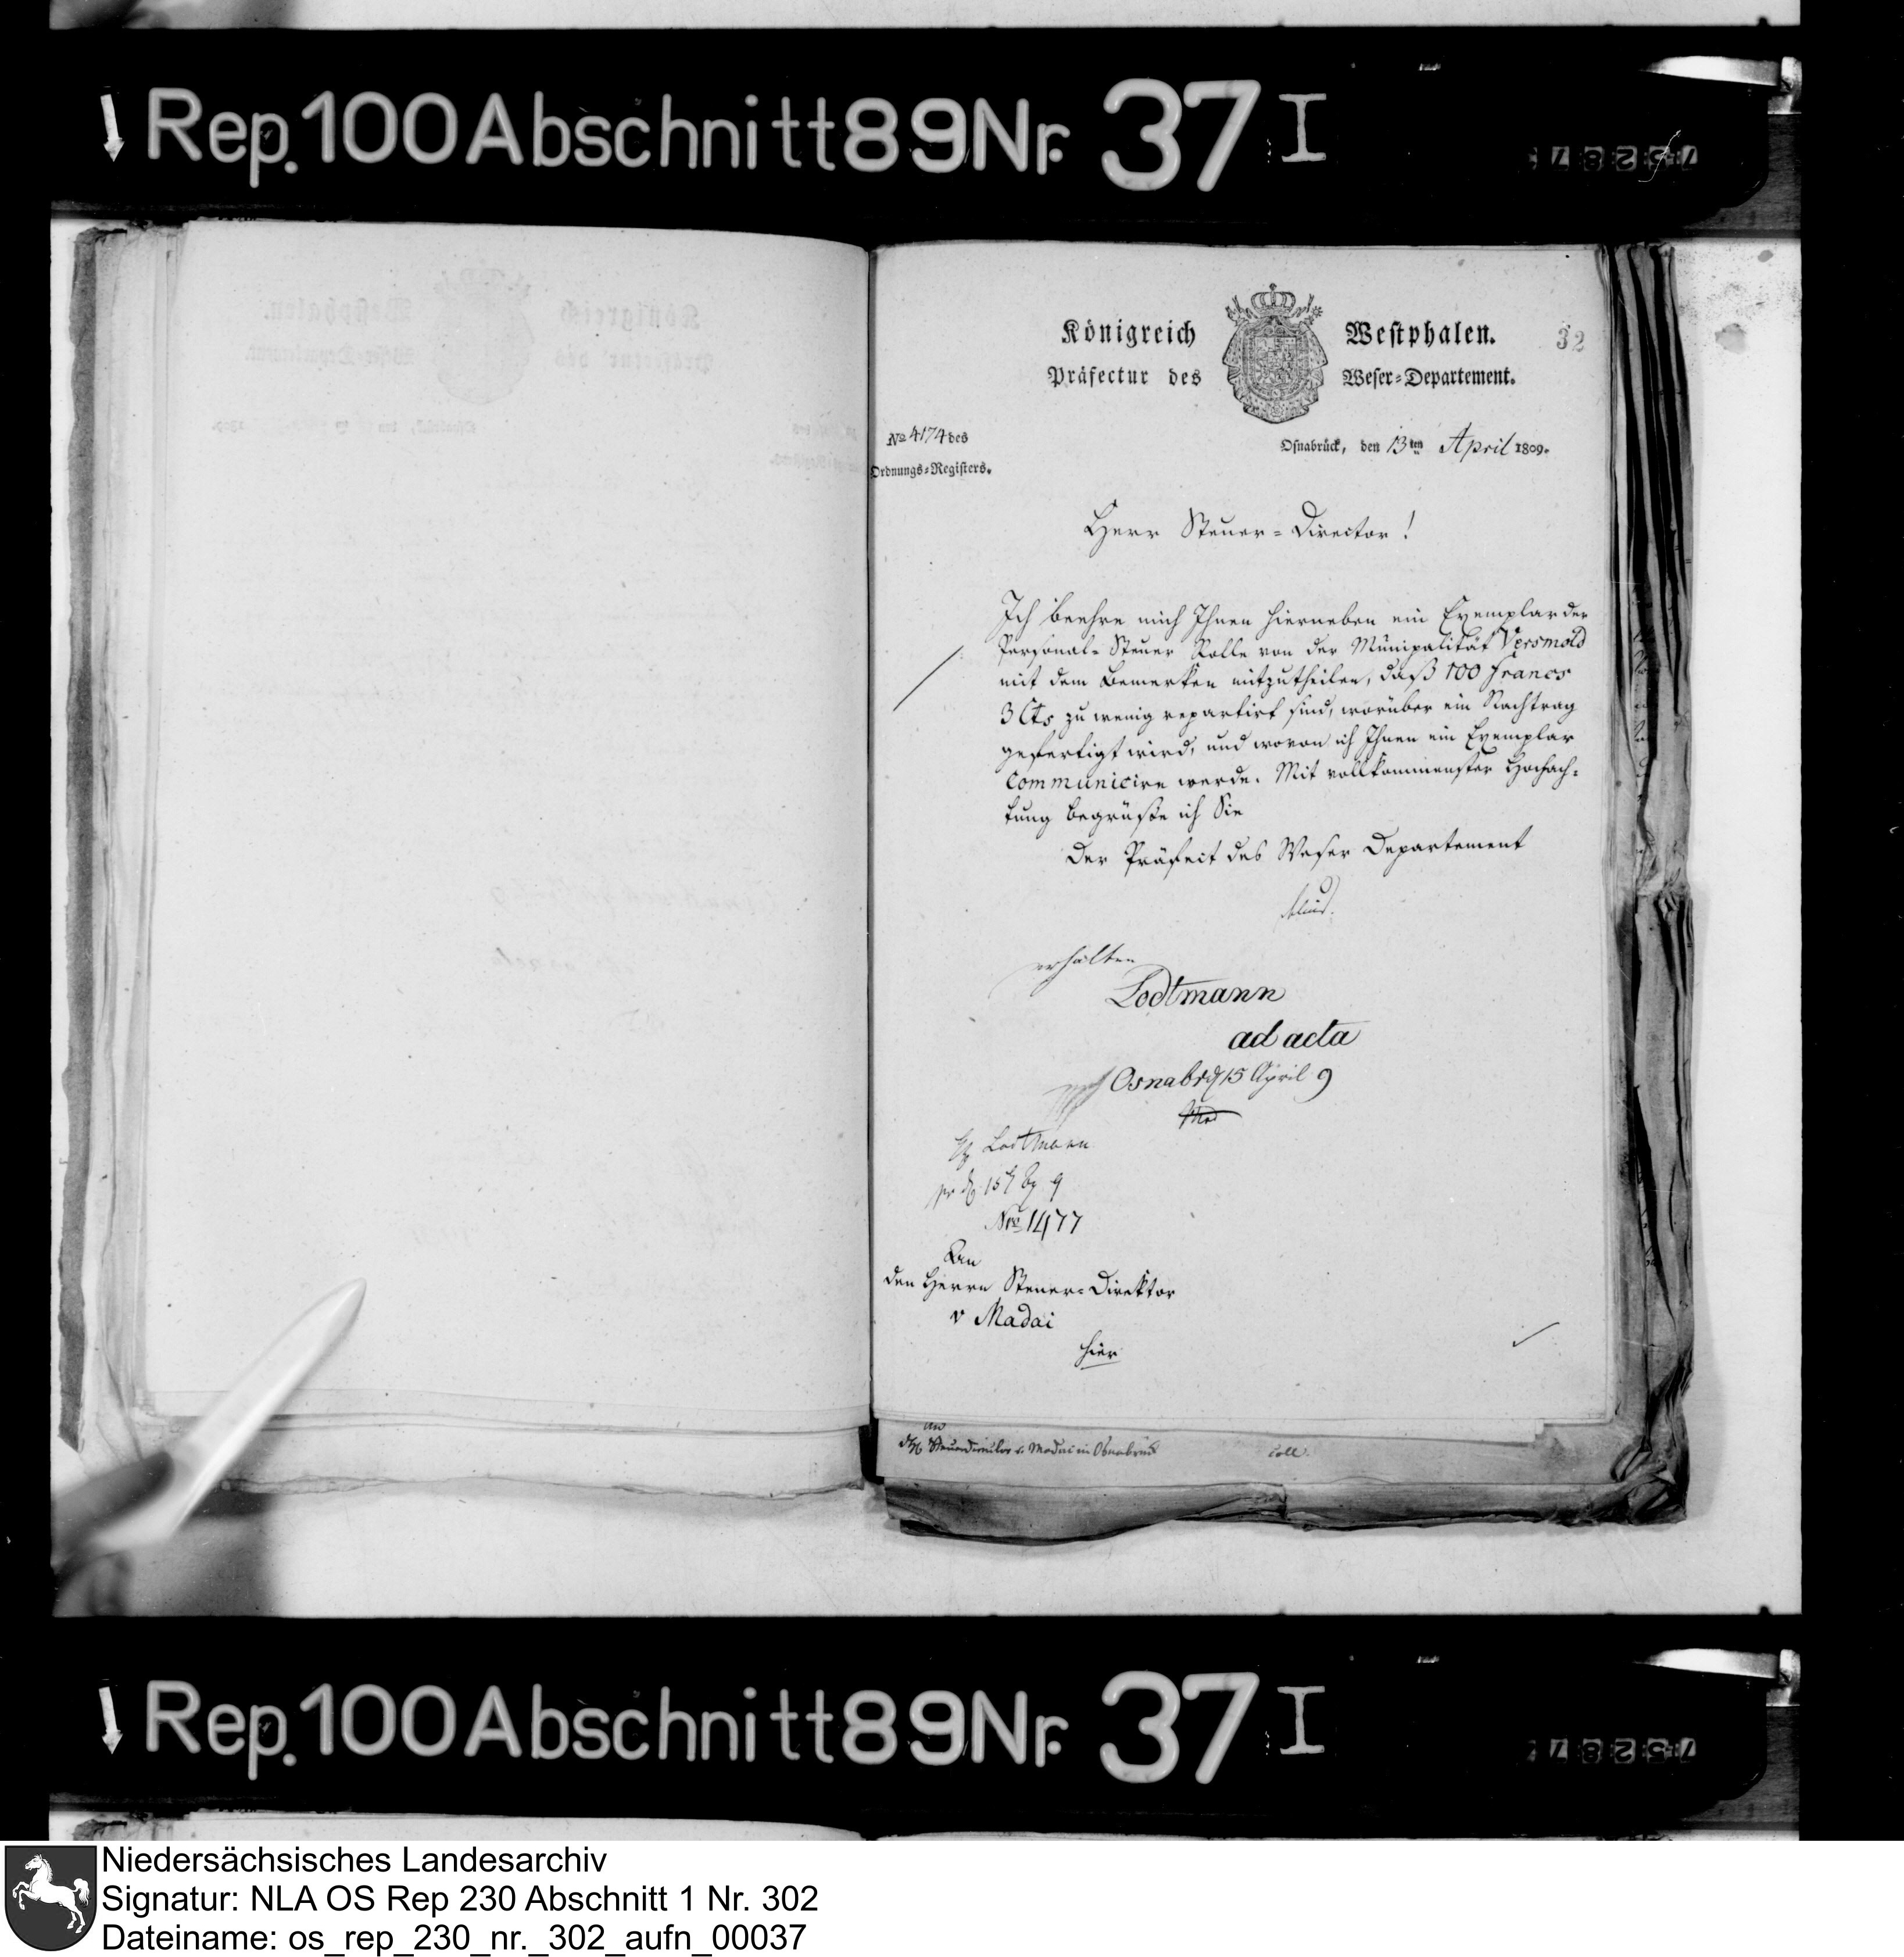 Rep.100Abschnitt89Nr. 37 I
Königreich Westphalen.
32
Präfectur des Weser-Departement.
No 4174 des
Ordnungs-Registers.
Osnabrück, den 13ten April 1809.
Herr Steuer-Director!
Ich beehre mich Ihnen hierneben ein Exemplar der
Personal-Steuer Rolle von der Municipalität Versmold
mit dem Bemerken mitzutheilen, daß 100 Francs
3 Cts zu wenig repartirt sind, worüber ein Nachtrag
gefertigt wird, und wovon ich Ihnen ein Exemplar
communicire werde. Mit vollkommenster Hochach-
tung begrüße ich Sie
Der Präfect des Weser Departement
erhalten
Lodtmann
ad acta
Osnabrg 15 April 9
Lodtmann
Nro 1477
An
den Herrn Steuer-Direktor
v Madai
hier
Steuerdirector v. Madai in Osnabrück
coll.
Rep.100Abschnitt89Nr. 37 I
Niedersächsisches Landesarchiv
Signatur: NLA OS Rep 230 Abschnitt 1 Nr. 302
Dateiname: os_rep_230_nr._302_aufn_00037